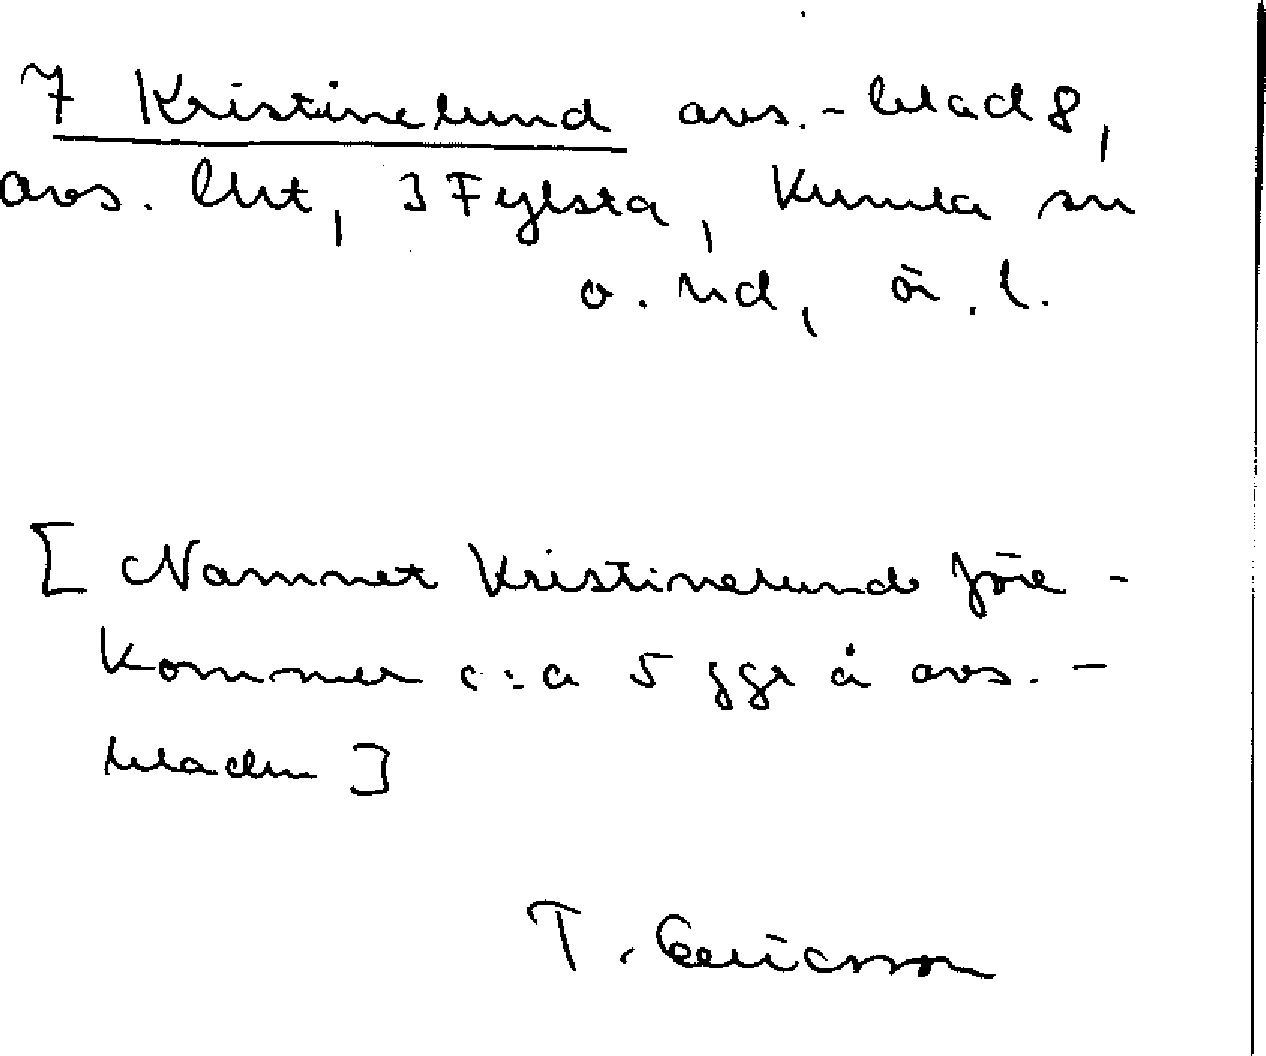 7 Kristinelund avs.-blad 8,
avs. lht, 3 Fylsta, Kumla sn
o. hd, ö. l.
[Namnet Kristinelund före-
kommer c:a 5 ggr å avs.-
bladen]
T. Ericsson